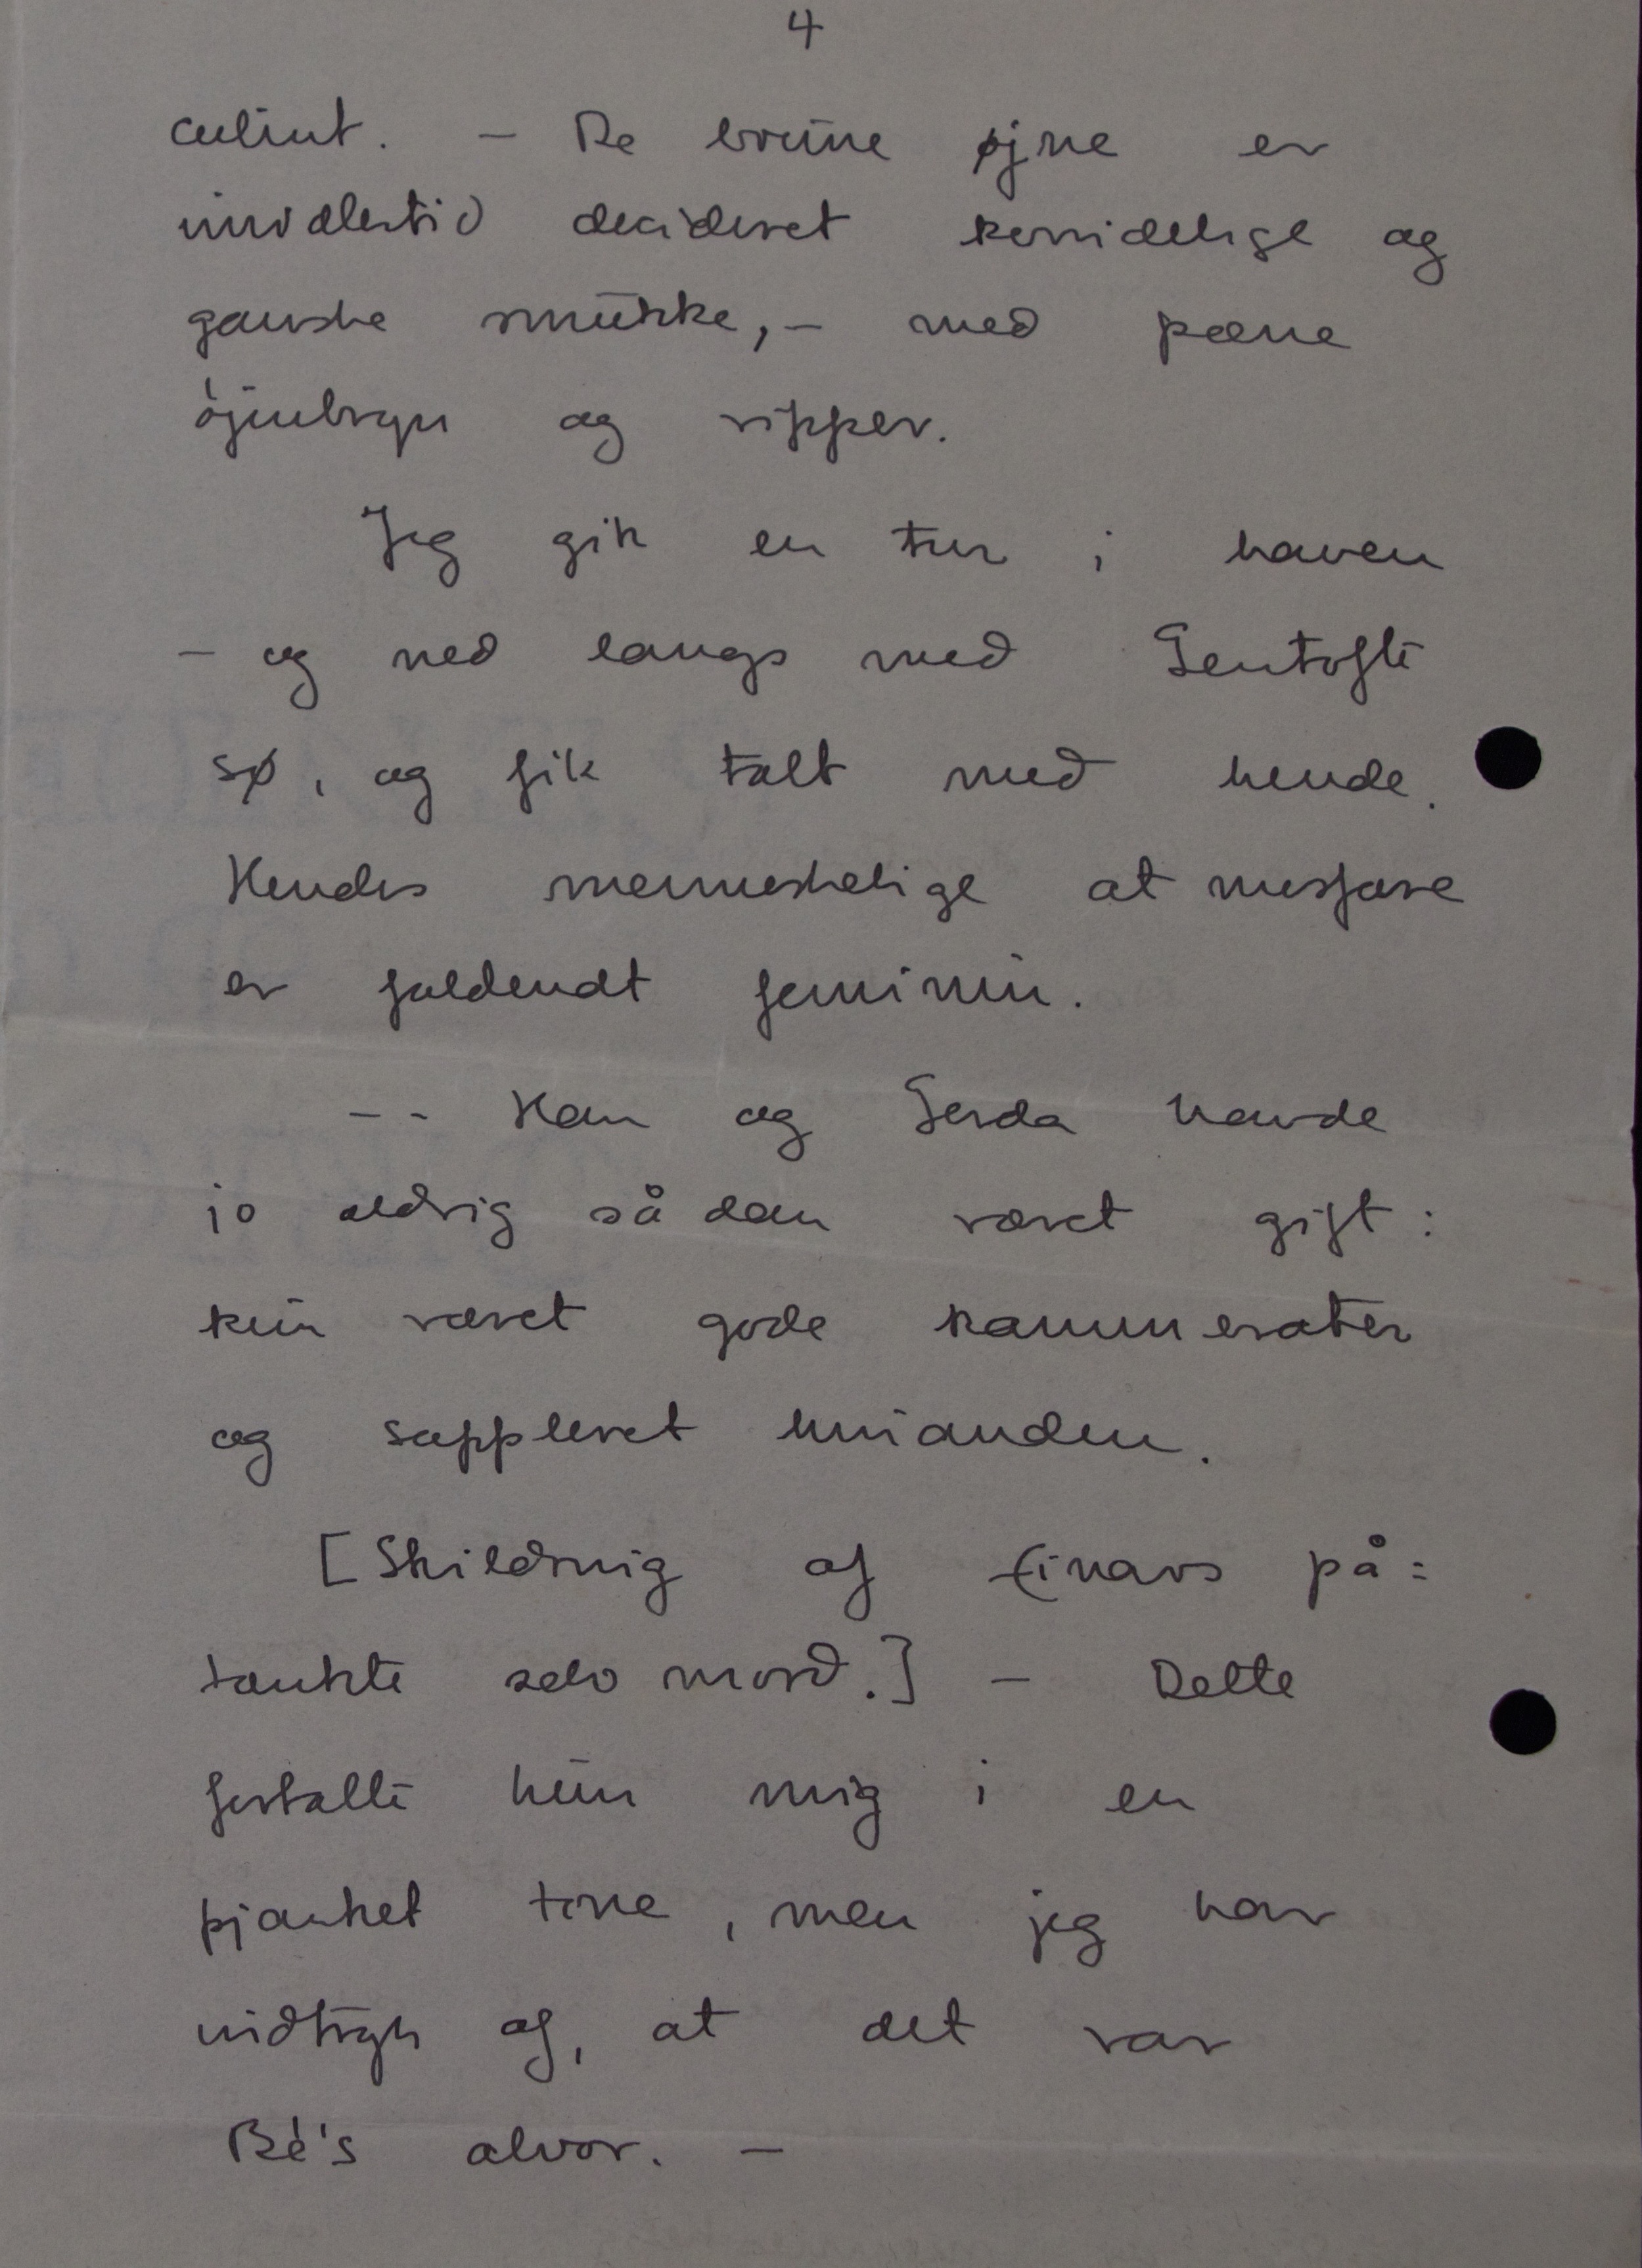 4
celint. – De brune øjne er
imidlertid decideret kvindelige og
ganske smukke, – med pæne
øjenbryn og vipper.
Jeg gik en tur i haven
– og ned langs med Gentofte
sø, og fik talt med hende.
Hendes menneskelige atmosfære
er fuldendt feminin.
– - Han og Gerda havde
jo aldrig sådan været gift:
kun været gode kammerater
og suppleret hinanden.
[Skildring af Einars på=
tænkte selvmord.] – Dette
fortalte hun mig i en
pjanket tone, men jeg har
indtryk af, at det var
Bé's alvor. –